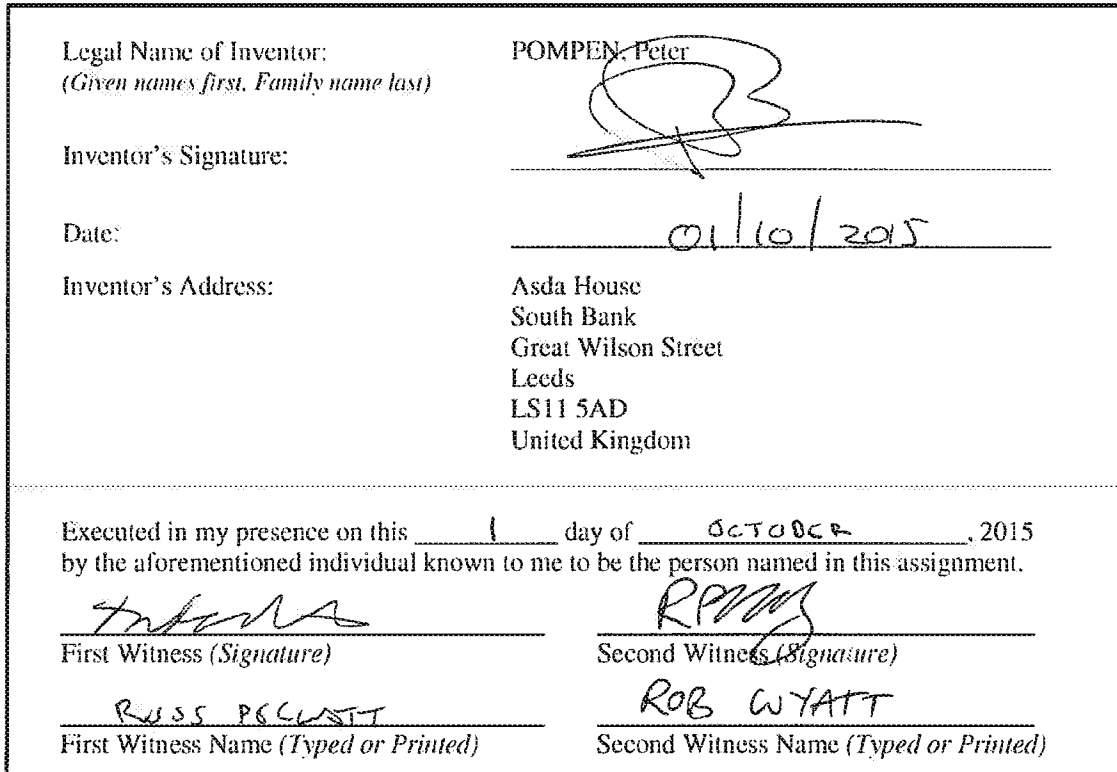 Legal Name of Inventor: POMPEN, Peter
(Given names first, Family name last)
Inventor's Signature:
Date: 01/10/2015
Inventor's Address: Asda House
South Bank
Great Wilson Street
Leeds
LS11 5AD
United Kingdom
Executed in my presence on this 1 day of OCTOBER, 2015
by the aforementioned individual known to me to be the person named in this assignment.
First Witness (Signature) Second Witness (Signature)
RUSS ROB WYATT
First Witness Name (Typed or Printed) Second Witness Name (Typed or Printed)